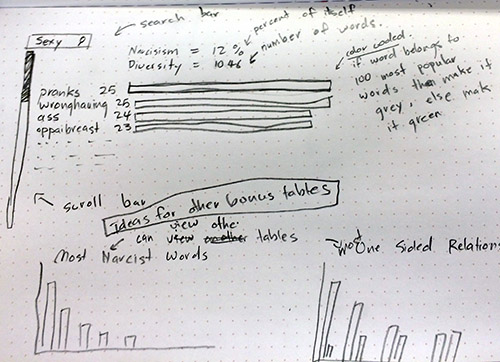 search bar
Sexy
percent of itself
Narcisism = 12 %
number of words.
Diversity = 10.46
color coded.
if word belongs to
100 most popular
words then make it
grey, else mak
it green
pranks 25
wronghaving 25
ass 24
oppaibreast 23
scroll bar
ideas for other bonus tables
view othe
can view another tables
Most Narcist Words
Most One Sided Relations